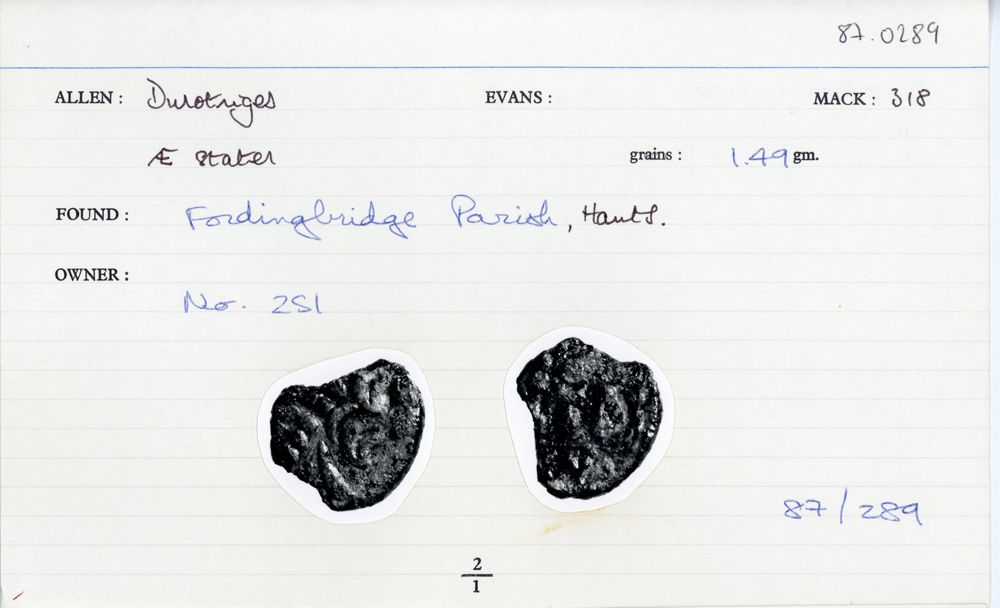 87.0289
ALLEN : Durotriges EVANS : MACK : 318
Æ stater grains : 1.49 gm.
FOUND : Fordingbridge Parish, Hants.
OWNER :
No. 251
87/289
2
1